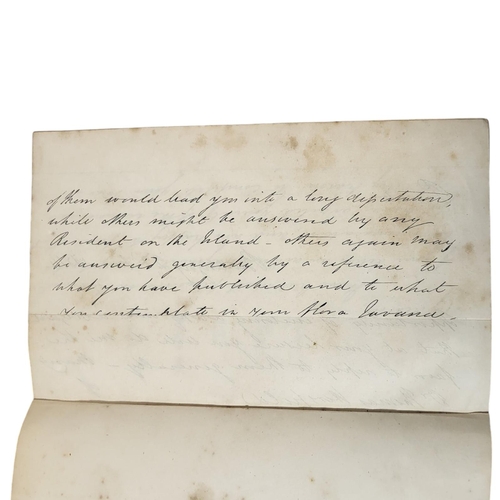 of them would lead you into a long dissertation,
while others might be answered by any
Resident on the Island - others again may
be answerd generally by a reference to
what you have published and to what
you contemplate in your Flora Javana -